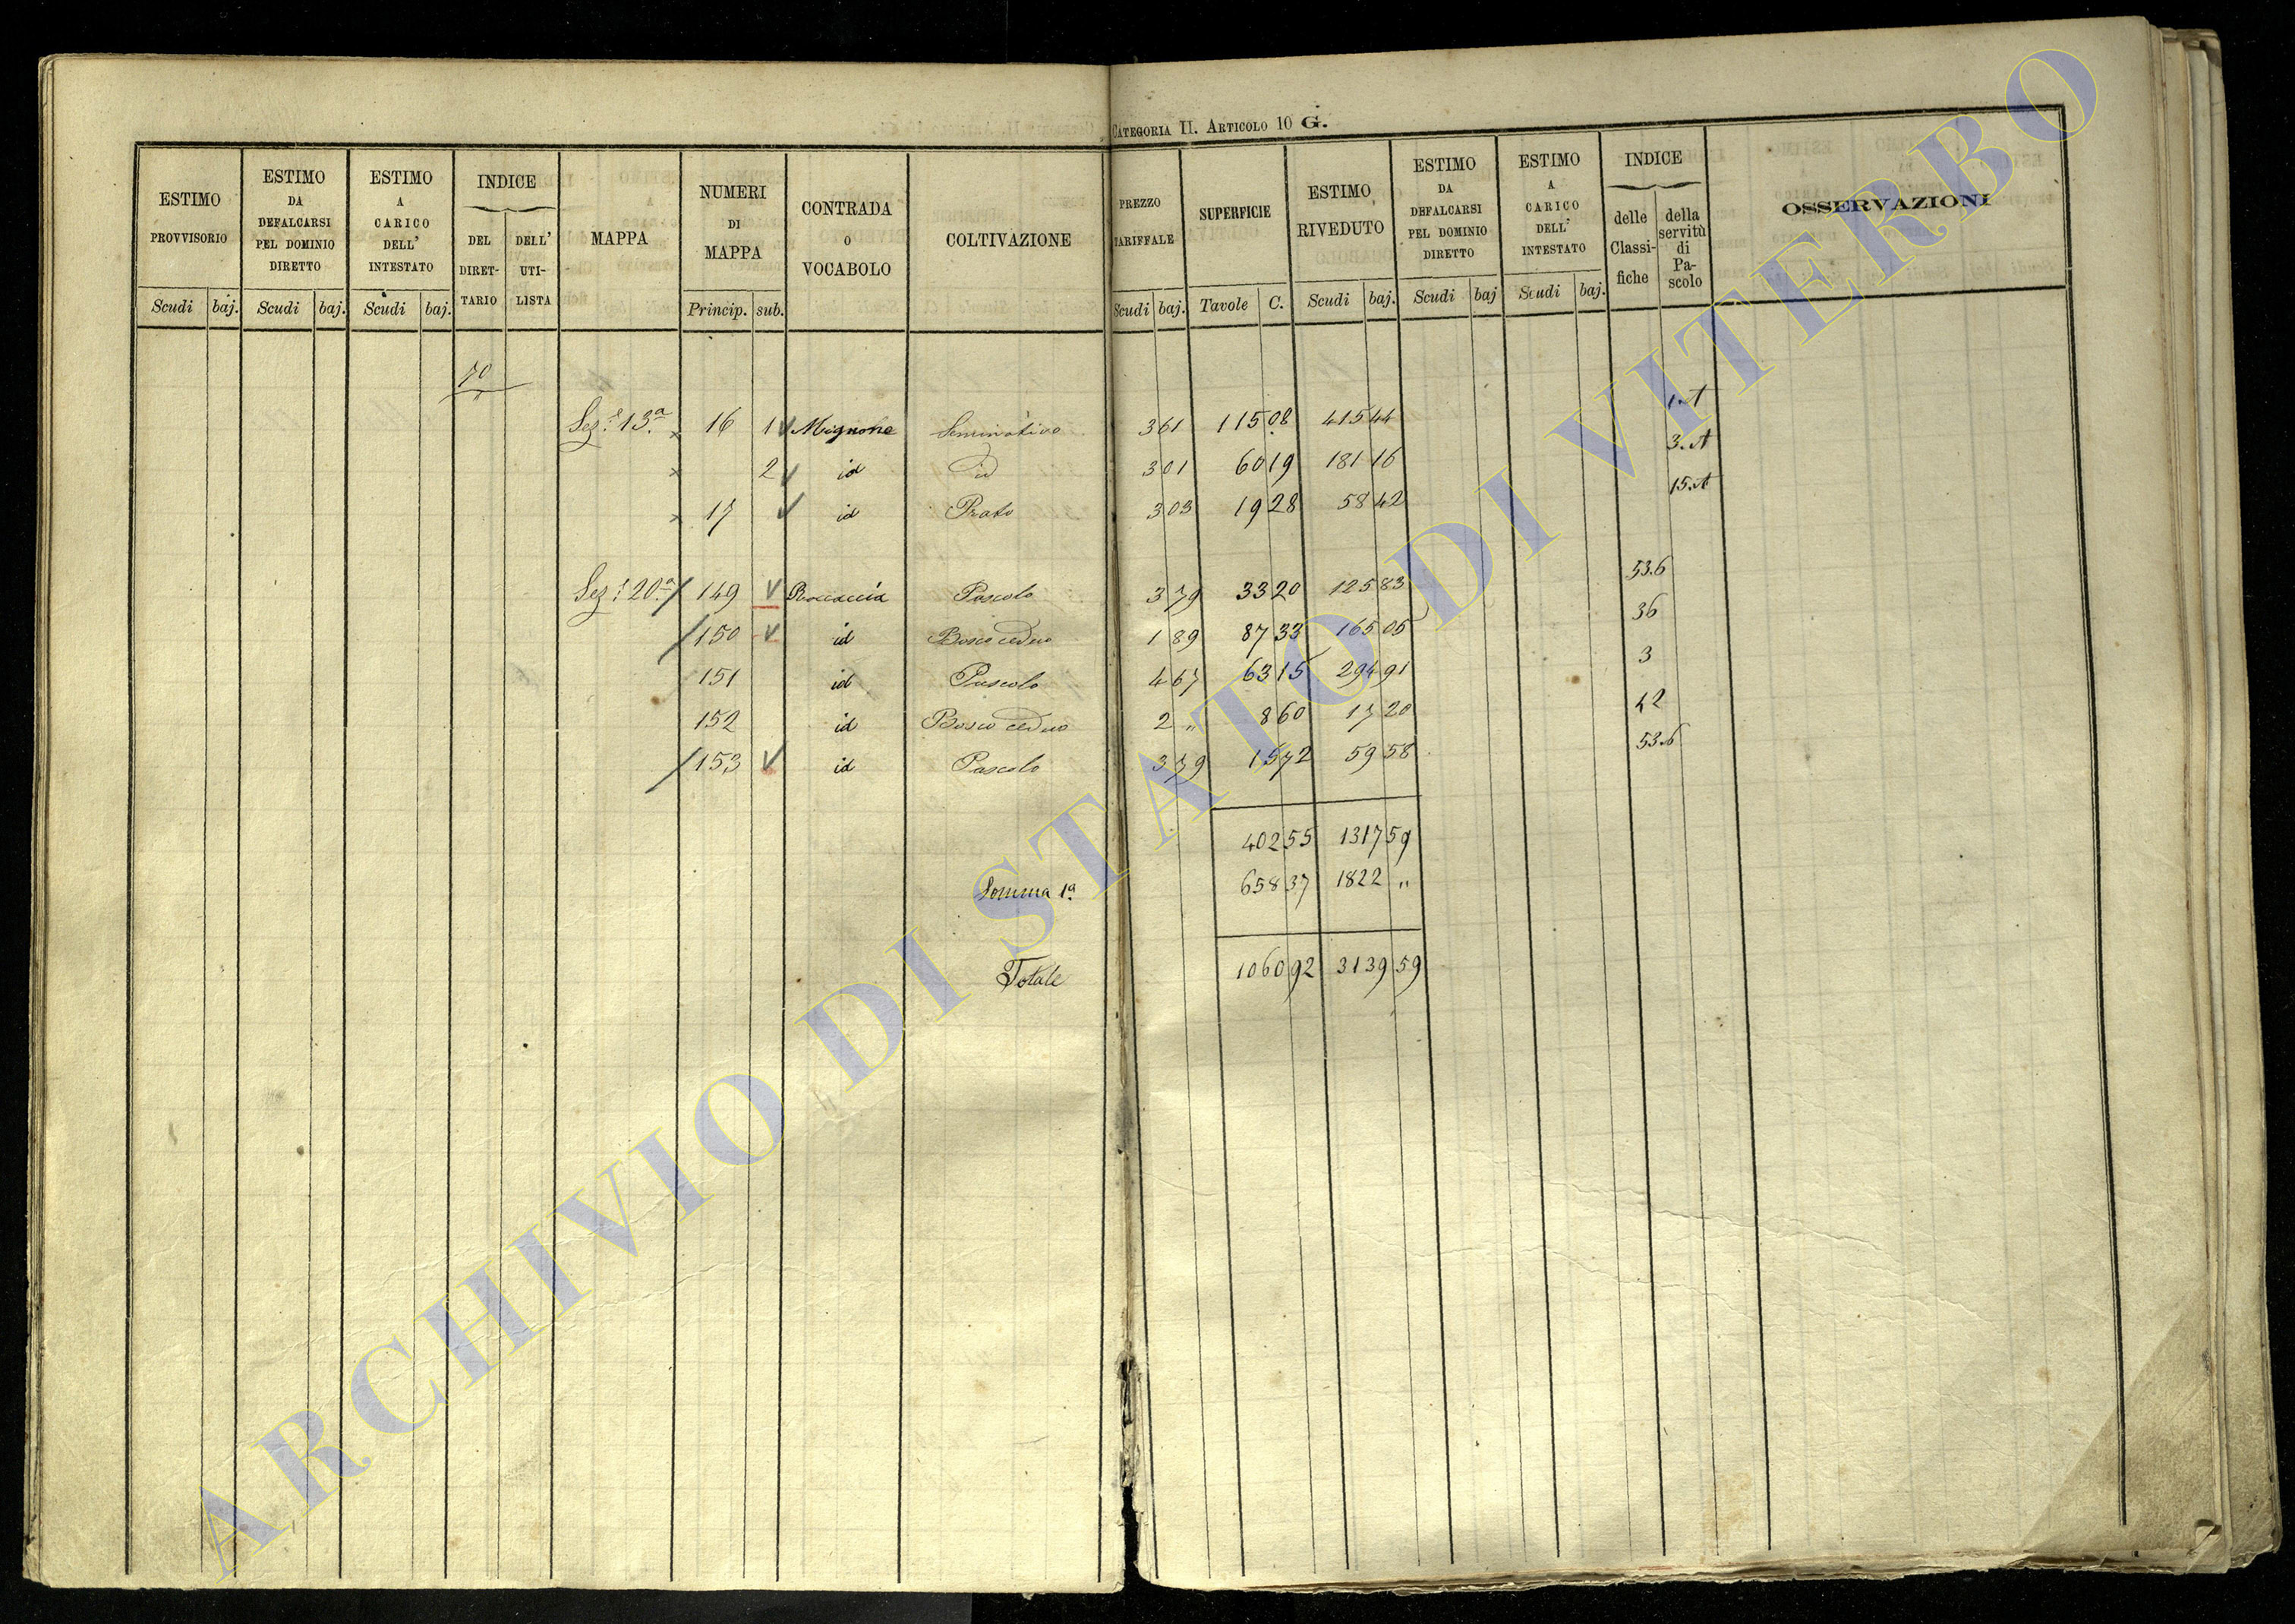 Categoria II. Articolo 10 G.
ESTIMO PROVVISORIO Scudi baj.
ESTIMO DA DEFALCARSI PEL DOMINIO DIRETTO Scudi baj.
ESTIMO A CARICO DELL' INTESTATO Scudi baj.
INDICE DEL DIRET-TARIO DELL' UTI-LISTA
MAPPA
NUMERI DI MAPPA Princip. sub.
CONTRADA O VOCABOLO
COLTIVAZIONE
PREZZO TARIFFALE Scudi baj.
SUPERFICIE Tavole C.
ESTIMO RIVEDUTO Scudi baj.
ESTIMO DA DEFALCARSI PEL DOMINIO DIRETTO Scudi baj
ESTIMO A CARICO DELL' INTESTATO Scudi baj.
INDICE delle Classi-fiche della servitù di Pa-scolo
OSSERVAZIONI
10
Sez.e 13.a 16 1 Mignone Seminativo 3 61 115 08 415 44 1.A
2 id id 3 01 60 19 181 16 3.A
17 id Prato 3 03 19 28 58 42 15.A
Sez.e 20.a 149 Roccaccia Pascolo 3 79 33 20 125 83 53.6
150 id Bosco ceduo 1 89 87 33 165 05 36
151 id Pascolo 4 67 63 15 294 91 3
152 id Bosco ceduo 2 " 8 60 17 20 42
153 id Pascolo 3 79 15 72 59 58 53.6
402 55 1317 59
Somma 1a. 658 37 1822 "
Totale 1060 92 3139 59
ARCHIVIO DI STATO DI VITERBO